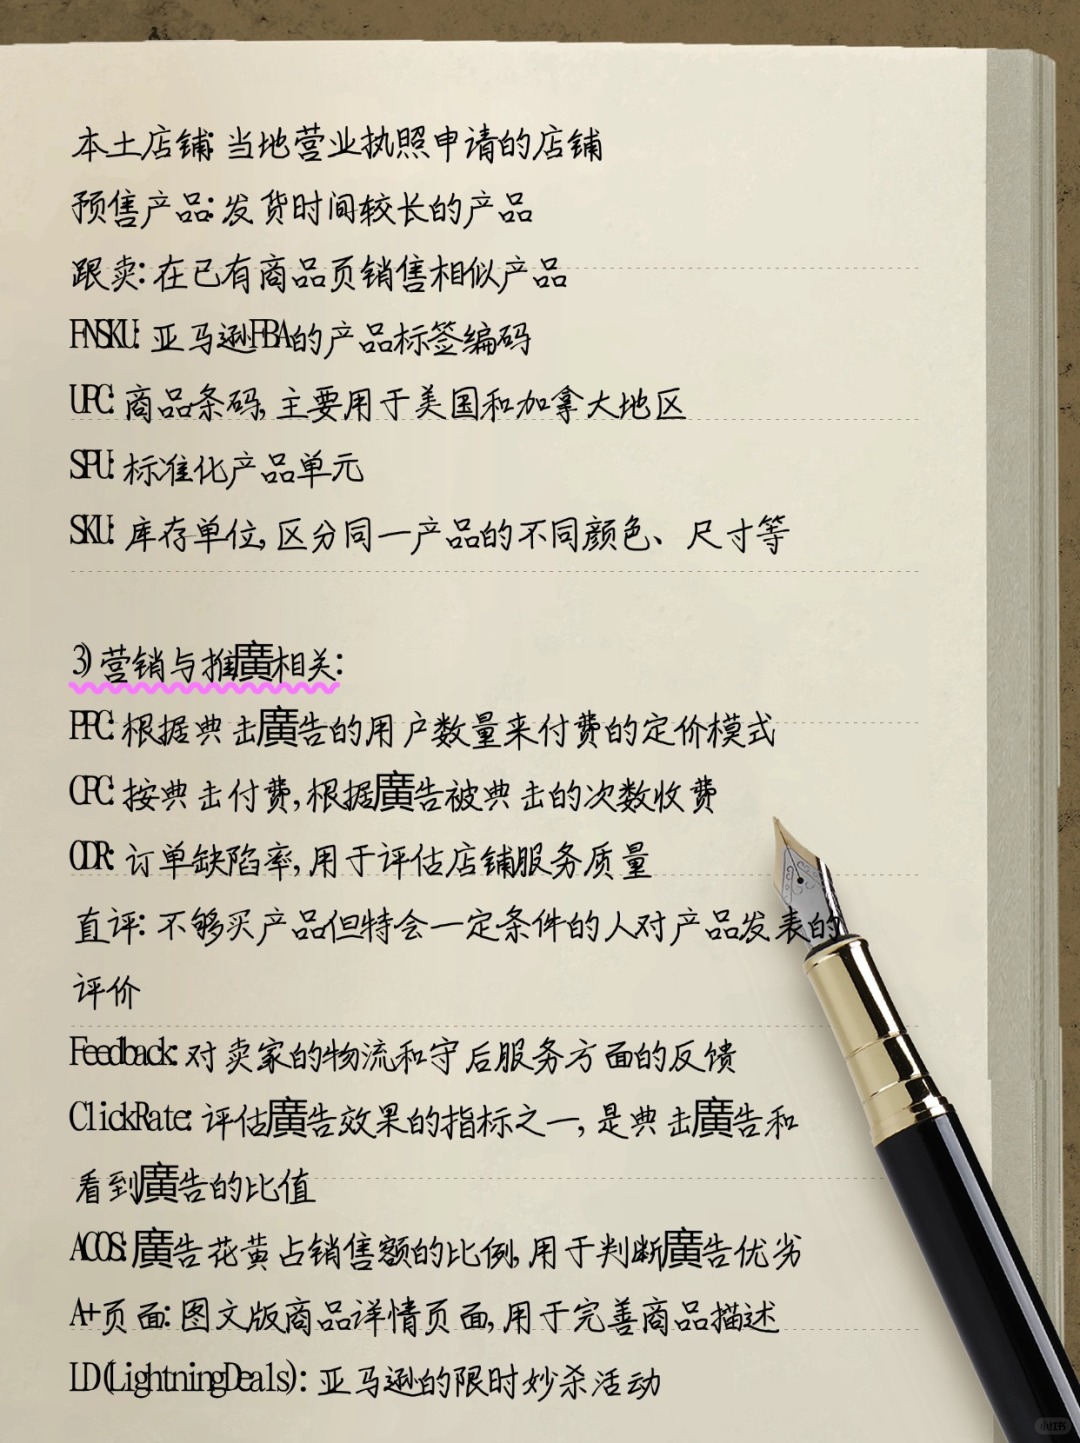 本土店铺:当地营业执照申请的店铺
预售产品:发货时间较长的产品
跟卖:在已有商品页销售相似产品
FNSKU:亚马逊FBA的产品标签编码
UPC:商品条码,主要用于美国和加拿大地区
SPU:标准化产品单元
SKU:库存单位,区分同一产品的不同颜色、尺寸等
3)营销与推廣相关:
PPC:根据典击廣告的用户数量来付费的定价模式
CPC:按典击付费,根据廣告被典击的次数收费
ODR:订单缺陷率,用于评估店铺服务质量
直评:不够买产品但特会一定条件的人对产品发表的
评价
Feedback:对卖家的物流和守后服务方面的反馈
ClickRate:评估廣告效果的指标之一,是典击廣告和
看到廣告的比值
ACOS:廣告花黄占销售额的比例,用于判断廣告优劣
A+页面:图文版商品详情页面,用于完善商品描述
LD(LightningDeals):亚马逊的限时妙杀活动
小红书